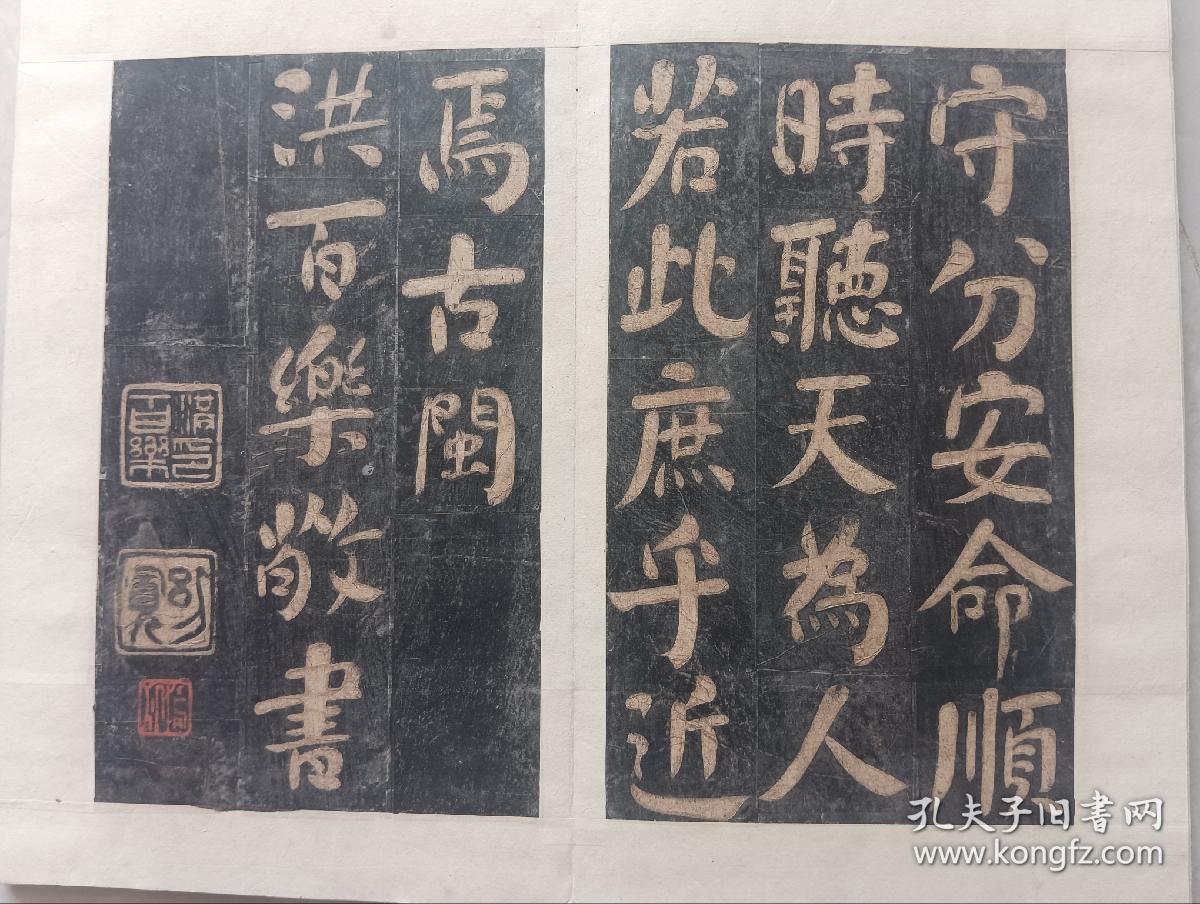 守分安命順
時聽天為人
若此庶乎近
焉古閩
洪百樂敬書
孔夫子旧书网
www.kongfz.com